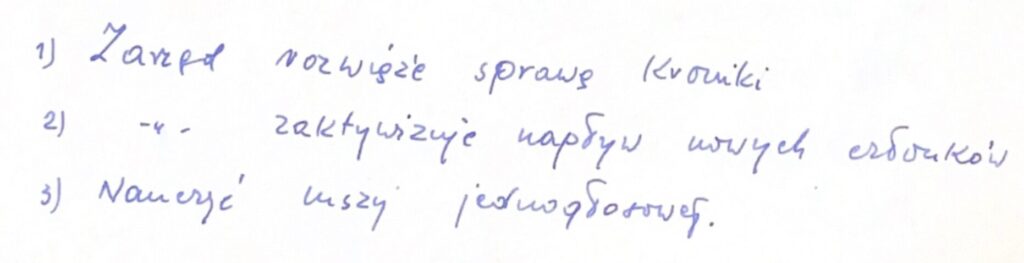 1) Zarząd rozwiąże sprawę Kroniki
2) -"- zaktywizuje napływ nowych członków
3) Nauczyć mszy jednogłosowej.